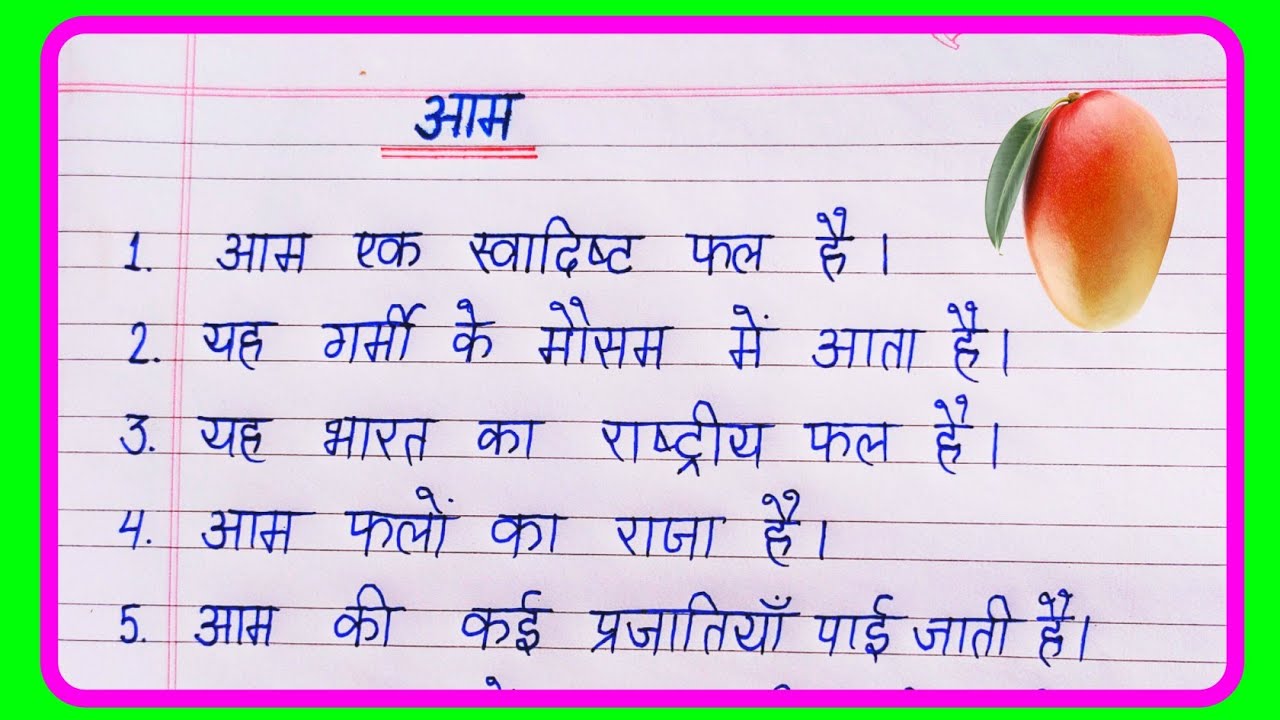 आम
1. आम एक स्वादिष्ट फल है।
2. यह गर्मी के मौसम में आता है।
3. यह भारत का राष्ट्रीय फल है।
4. आम फलों का राजा है।
5. आम की कई प्रजातियाँ पाई जाती है।